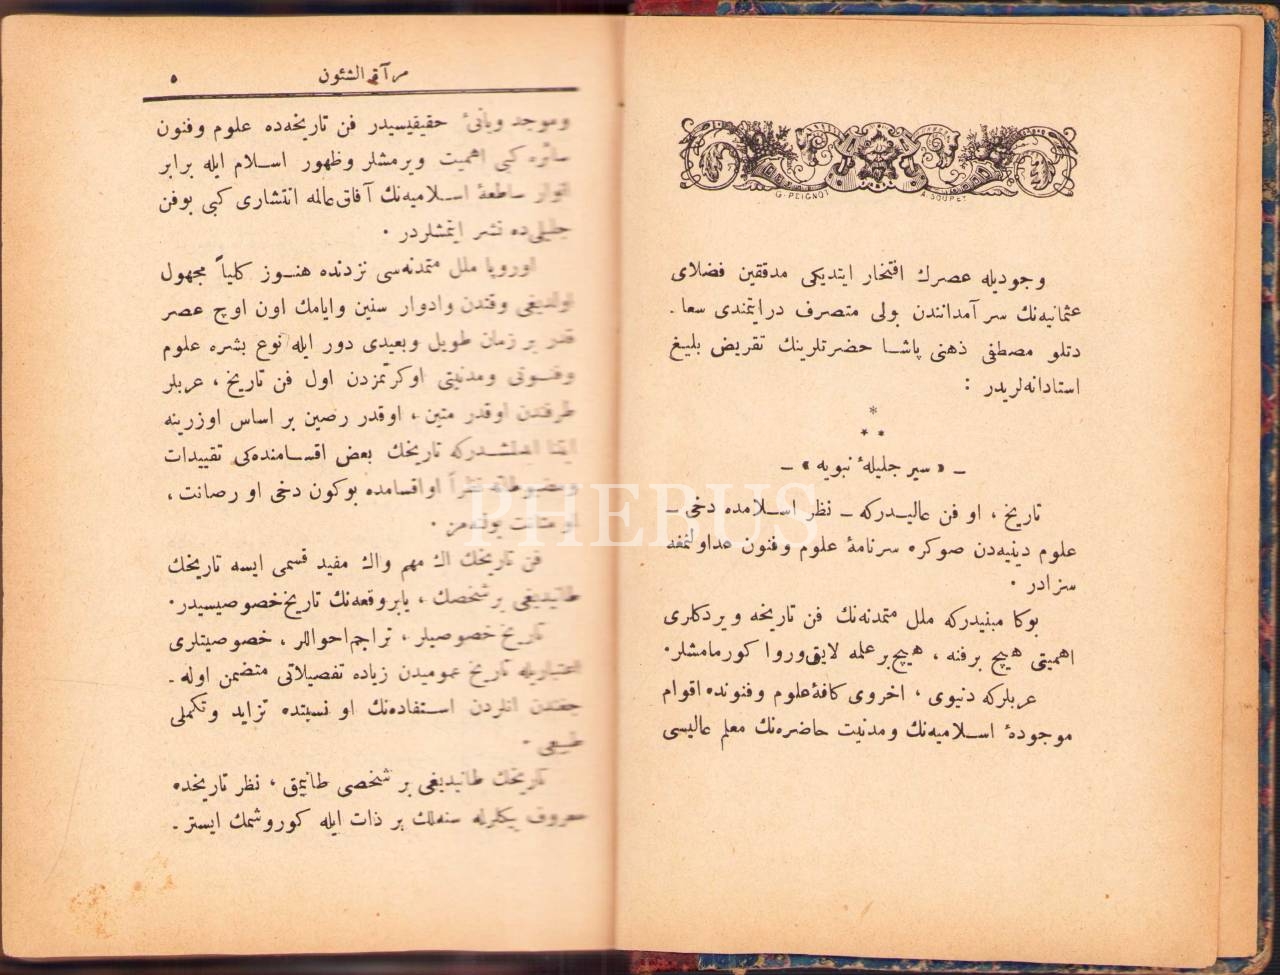 G. PEIGNOT
وجودیله عصرك افتخار ایتدیکی مدققین فضلای
عثمانیه‌نك سر آمدانندن بولی متصرف درایتمندی سعا ـ
دتلو مصطفی ذهنی پاشا حضرتلرینك تقریض بلیغ
استادانه‌لریدر :
*
* *
ـ « سیر جلیلهٔ نبویه » ـ
تاریخ ، او فن عالیدرکه ـ نظر اسلامده دخی ـ
علوم دینیه‌دن صوکره سرنامهٔ علوم وفنون عداولنمغه
سزادر ·
بوکا مبنیدرکه ملل متمدنه‌نك فن تاریخه ویردکلری
اهمیتی هیچ برفنه ، هیچ برعلمه لایق‌وروا کورمامشلر·
عربلرکه دنیوی ، اخروی کافهٔ علوم وفنونده اقوام
موجودهٔ اسلامیه‌نك ومدنیت حاضره‌نك معلم عالیسی
مرآة الشئون
٥
وموجد وبانیٔ حقیقیسیدر فن تاریخه‌ده علوم وفنون
سائره کبی اهمیت ویرمشلر وظهور اسلام ایله برابر
انوار ساطعهٔ اسلامیه‌نك آفاق عالمه انتشاری کبی بوفن
جلیلی‌ده نشر ایتمشلردر ·
اوروپا ملل متمدنه‌سی نزدنده هنوز کلیاً مجهول
اولدیغی وقتدن وادوار سنین وایامك اون اوچ عصر
قدر بر زمان طویل وبعیدی دور ایله نوع بشره علوم
وفنونی ومدنیتی اوکرتمزدن اول فن تاریخ ، عربلر
طرفندن اوقدر متین ، اوقدر رصین بر اساس اوزرینه
ابتنا ایدلمشدرکه تاریخك بعض اقسامنده‌کی تقییدات
ومضبوطاته نظراً اواقسامده بوکون دخی او رصانت ،
او متانت بولنه‌مز ·
فن تاریخك اك مهم واك مفید قسمی ایسه تاریخك
طانیدیغی برشخصك ، یابروقعه‌نك تاریخ خصوصیسیدر·
تاریخ خصوصیلر ، تراجم‌احواللر ، خصوصیتلری
اعتباریله تاریخ عمومیدن زیاده تفصیلاتی متضمن اوله ـ
جغندن انلردن استفاده‌نك او نسبتده تزاید وتکملی
طبیعی ·
تاریخك طانیدیغی بر شخصی طانیمق ، نظر تاریخده
معروف بیکلرله سنه‌لك بر ذات ایله کوروشمك ایستر ـ
PHEBUS